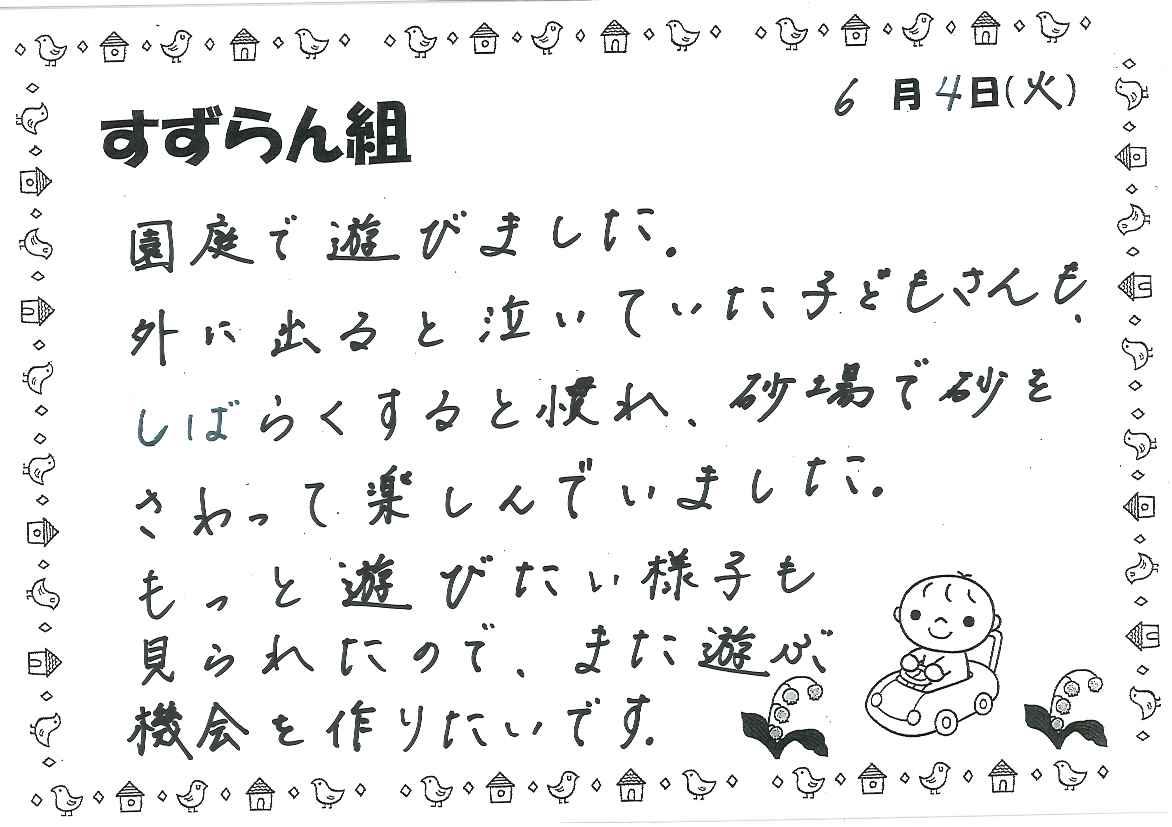 6月4日(火)
すずらん組
園庭で遊びました。
外に出ると泣いていた子どもさんも、
しばらくすると慣れ、砂場で砂を
さわって楽しんでいました。
もっと遊びたい様子も
見られたので、また遊ぶ
機会を作りたいです。